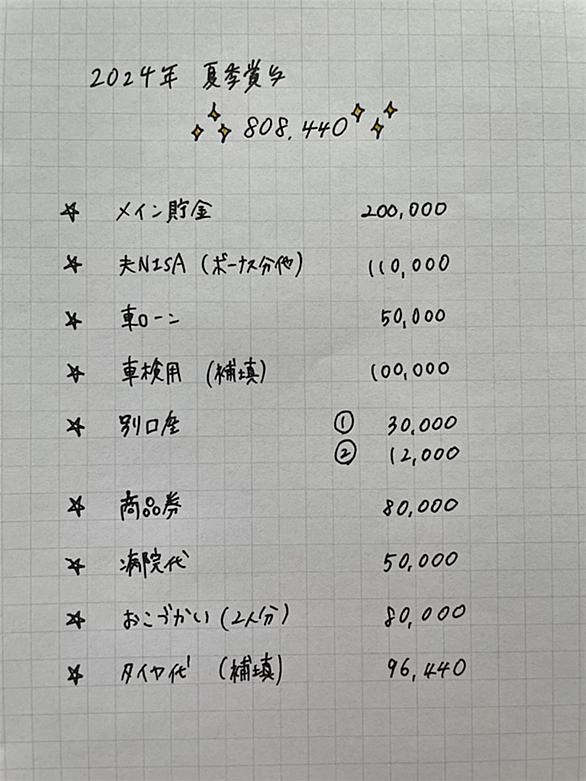 2024年 夏季賞与
808,440
☆ メイン貯金 200,000
☆ 夫NISA (ボーナス分他) 110,000
☆ 車ローン 50,000
☆ 車検用 (補填) 100,000
☆ 別口座 ① 30,000
② 12,000
☆ 商品券 80,000
☆ 病院代 50,000
☆ おこづかい (2人分) 80,000
☆ タイヤ代 (補填) 96,440